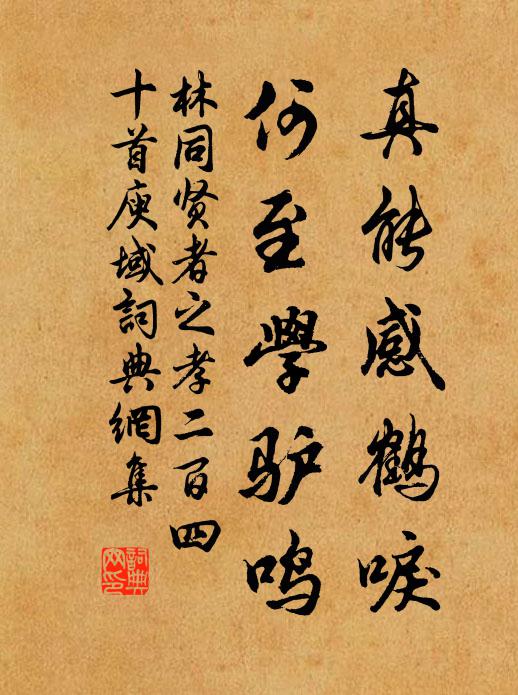 真能感鹤唳
何至學驴鸣
林同贤者之孝二百四
十首庾域詞典網集
詞典網印